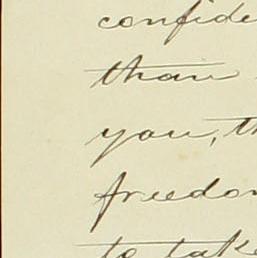 confide
than
you, th
freedom
to take